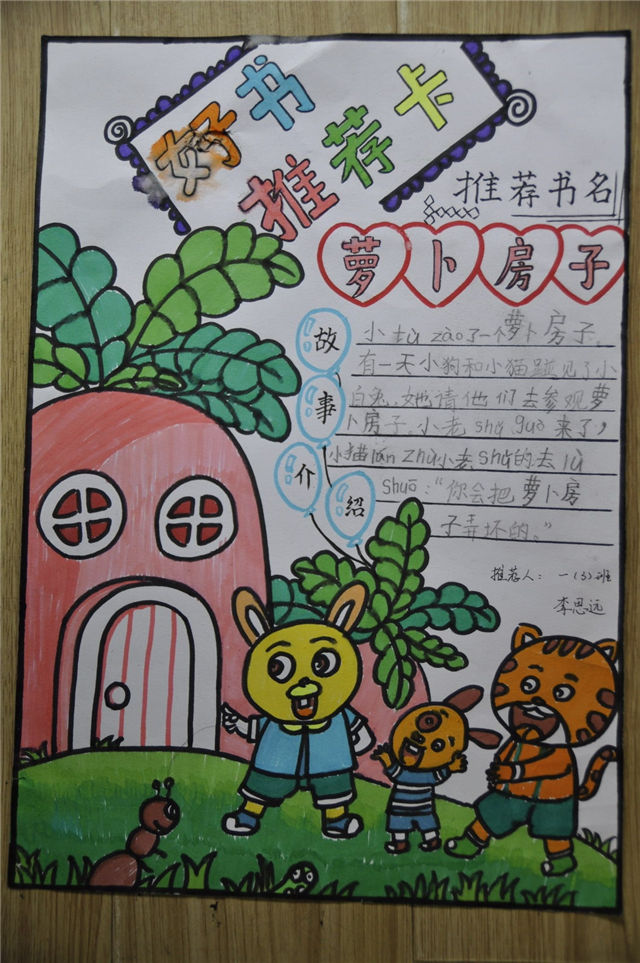 好书
推荐卡
推荐书名
萝卜房子
故事介绍
小tù zào了一个萝卜房子。
有一天小狗和小猫碰见了小
白兔,她请他们去参观萝
卜房子.小老shǔ guò来了,
小猫 zhu小老shǔ的去lù
shuō:“你会把萝卜房
子弄坏的。”
推荐人: 一(3)班
李思远